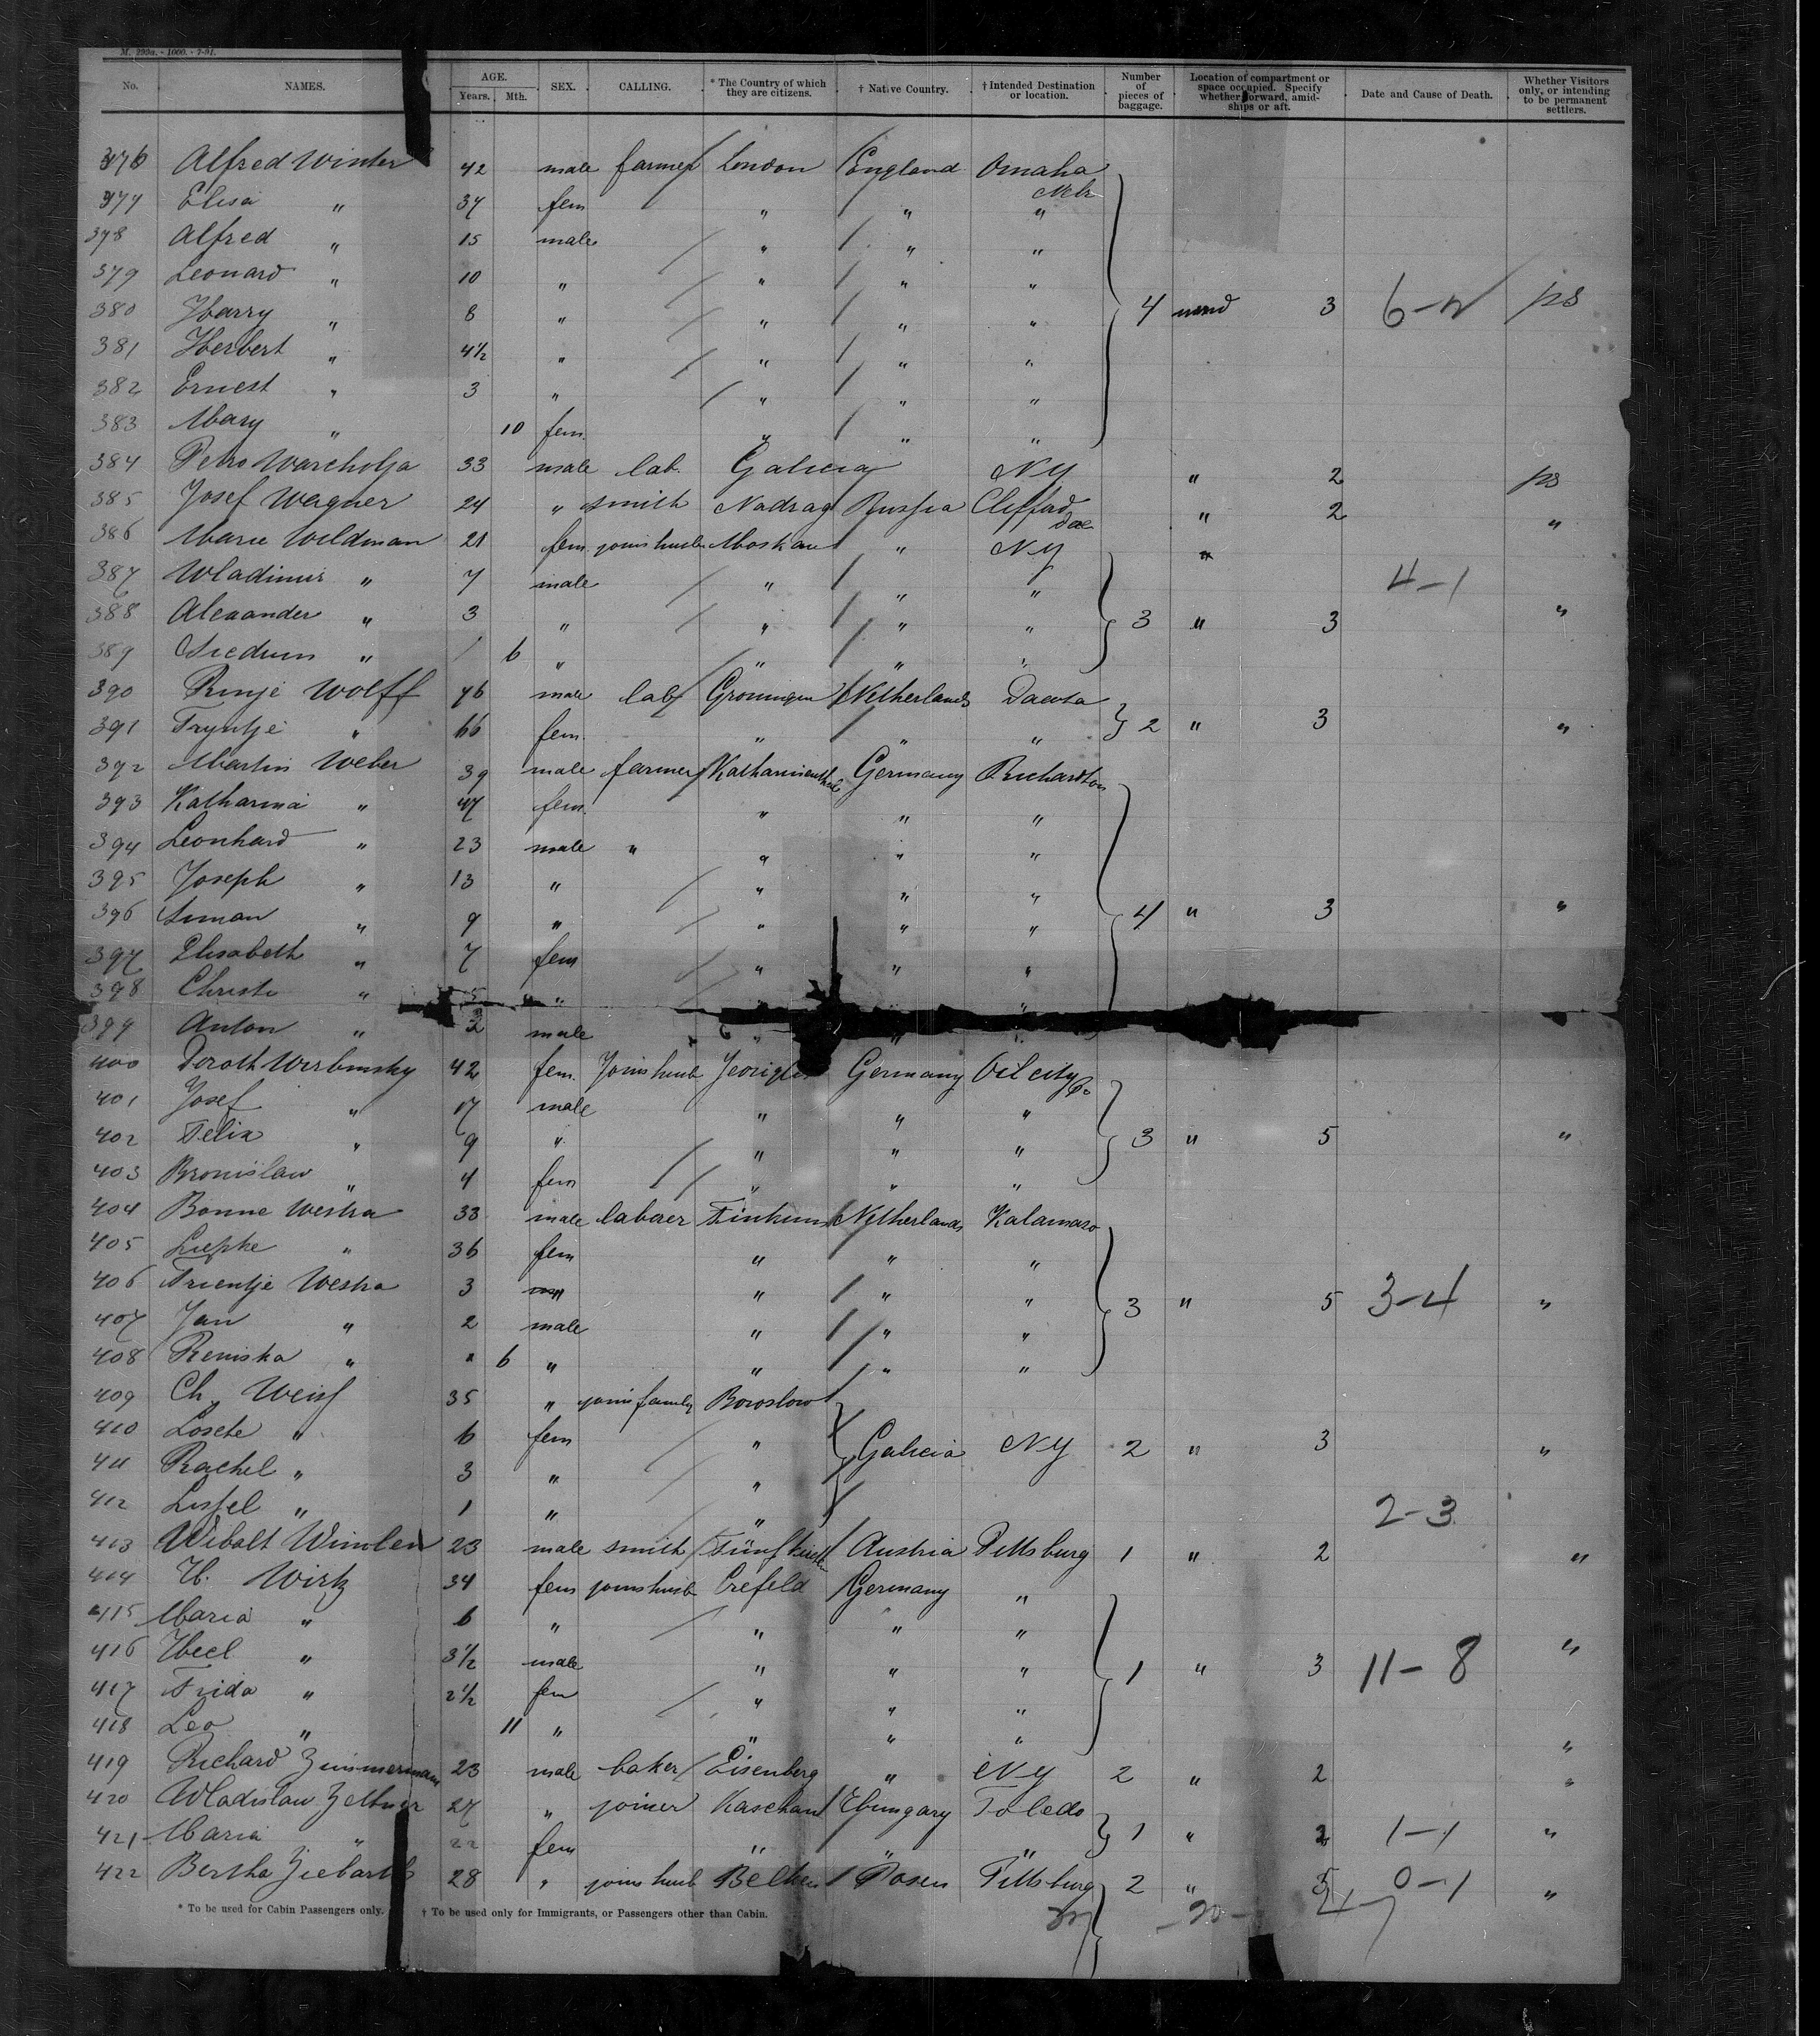 M. 299a. - 1000. - 7-91.
No. NAMES. AGE. Years. Mth. SEX. CALLING. * The Country of which they are citizens. † Native Country. † Intended Destination or location. Number of pieces of baggage. Location of compartment or space occupied. Specify whether forward, amidships or aft. Date and Cause of Death. Whether Visitors only, or intending to be permanent settlers.
376 Alfred Winter 42 male farmer London England Omaha Nebr
377 Elisa " 37 fem " " "
378 Alfred " 15 male " " "
379 Leonard " 10 " " " "
380 Harry " 8 " " " " 4 3 ps
381 Herbert " 4½ " " " "
382 Ernest " 3 " " " "
383 Mary " 10 fem. " " "
384 Petro Warcholja 33 male lab. Galicia NY " 2 ps
385 Josef Wagner 24 " smith Nadrag Russia " 2 "
386 Marie Wildman 21 fem. joins husb Moskau " NY "
387 Wladimir " 7 male " " " 4-1
388 Alexander " 3 " " " " 3 " 3 "
389 " 6 " " " "
390 Rinje Wolff 76 male lab Groningen Netherlands Dacota
391 Tryntje " 66 fem. " " " 2 " 3 "
392 Martin Weber 39 male farmer Katharinenthal Germany Richardton
393 Katharina " 47 fem. " " "
394 Leonhard " 23 male " " " "
395 Joseph " 13 " " " "
396 Siman " 9 " " " " 4 " 3 "
397 Elisabeth " 7 fem " " "
398 Christi " "
399 Anton " 2 male
400 Doroth Werbinsky 42 fem. Joins husb Germany Oil city Pa
401 Josef " 17 male " " "
402 Felix " 9 " " " " 3 " 5 "
403 Bronislaw " 4 fem " " "
404 Bonne Westra 33 male laborer Netherlands Kalamazo
405 Liepke " 36 fem " " "
406 Trientje Westra 3 " " " "
407 Jan " 2 male " " " 3 " 5 3-4 "
408 Reniska " " 6 " " " "
409 Ch. Weiss 35 " joins family Boroslow
410 Losche " 6 fem " Galicia NY 2 " 3 "
411 Rachel " 3 " "
412 Lissel " 1 " " 2-3
413 Wibalt 23 male smith Fünfkirchen Austria Pittsburg 1 " 2 "
414 H. Wirtz 34 fem joins husb Crefeld Germany "
415 Maria " 6 " " " "
416 " 3½ male " " " 1 " 3 11-8 "
417 Frida " 2½ fem " " "
418 Leo " 11 " " " " "
419 Richard Zimmerman 23 male baker Eisenberg " NY 2 " 2 "
420 Wladislaw Zeltner 27 " joiner Kaschau Hungary Toledo
421 Maria " 22 fem " " " 1 " 2 1-1 "
422 Bertha Ziebarth 28 " joins husb Posen Pittsburg 2 " 5 0-1 "
* To be used for Cabin Passengers only. † To be used only for Immigrants, or Passengers other than Cabin.